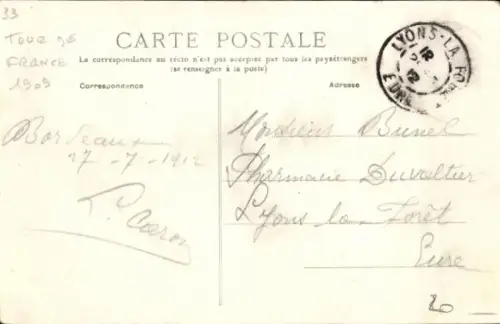 33
TOUR DE
FRANCE
1909
CARTE POSTALE
La correspondance au recto n'est pas acceptée par tous les pays étrangers
(se renseigner à la poste)
Correspondance
Adresse
LYONS-LA-FO
EURE
Bordeaux
27-7-1912
Monsieur Bunel
Pharmacie Duvaltier
Lyons la Forêt
Eure
20